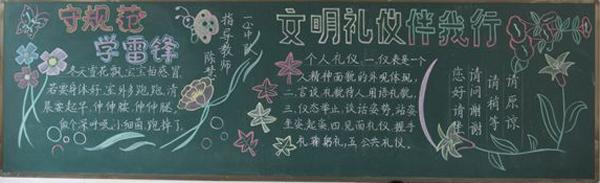 守规范
学雷锋
一(2)中队
指导教师
冬天雪花飘,宝宝怕感冒,
若要身体好,室外多跑跑,清
晨要起早,伸伸腰,伸伸腿,
做个深呼吸,小细菌,跑掉了.
文明礼仪伴我行
个人礼仪,一.仪表是一个
人精神面貌的外观体现,
二.言谈,礼貌待人,用语礼貌,
三.仪态举止,谈话姿势,站姿
坐姿起姿四.见面礼仪,握手
礼鞠躬礼,五.公共礼仪.
请原谅
请稍等
请问谢谢
您好请坐